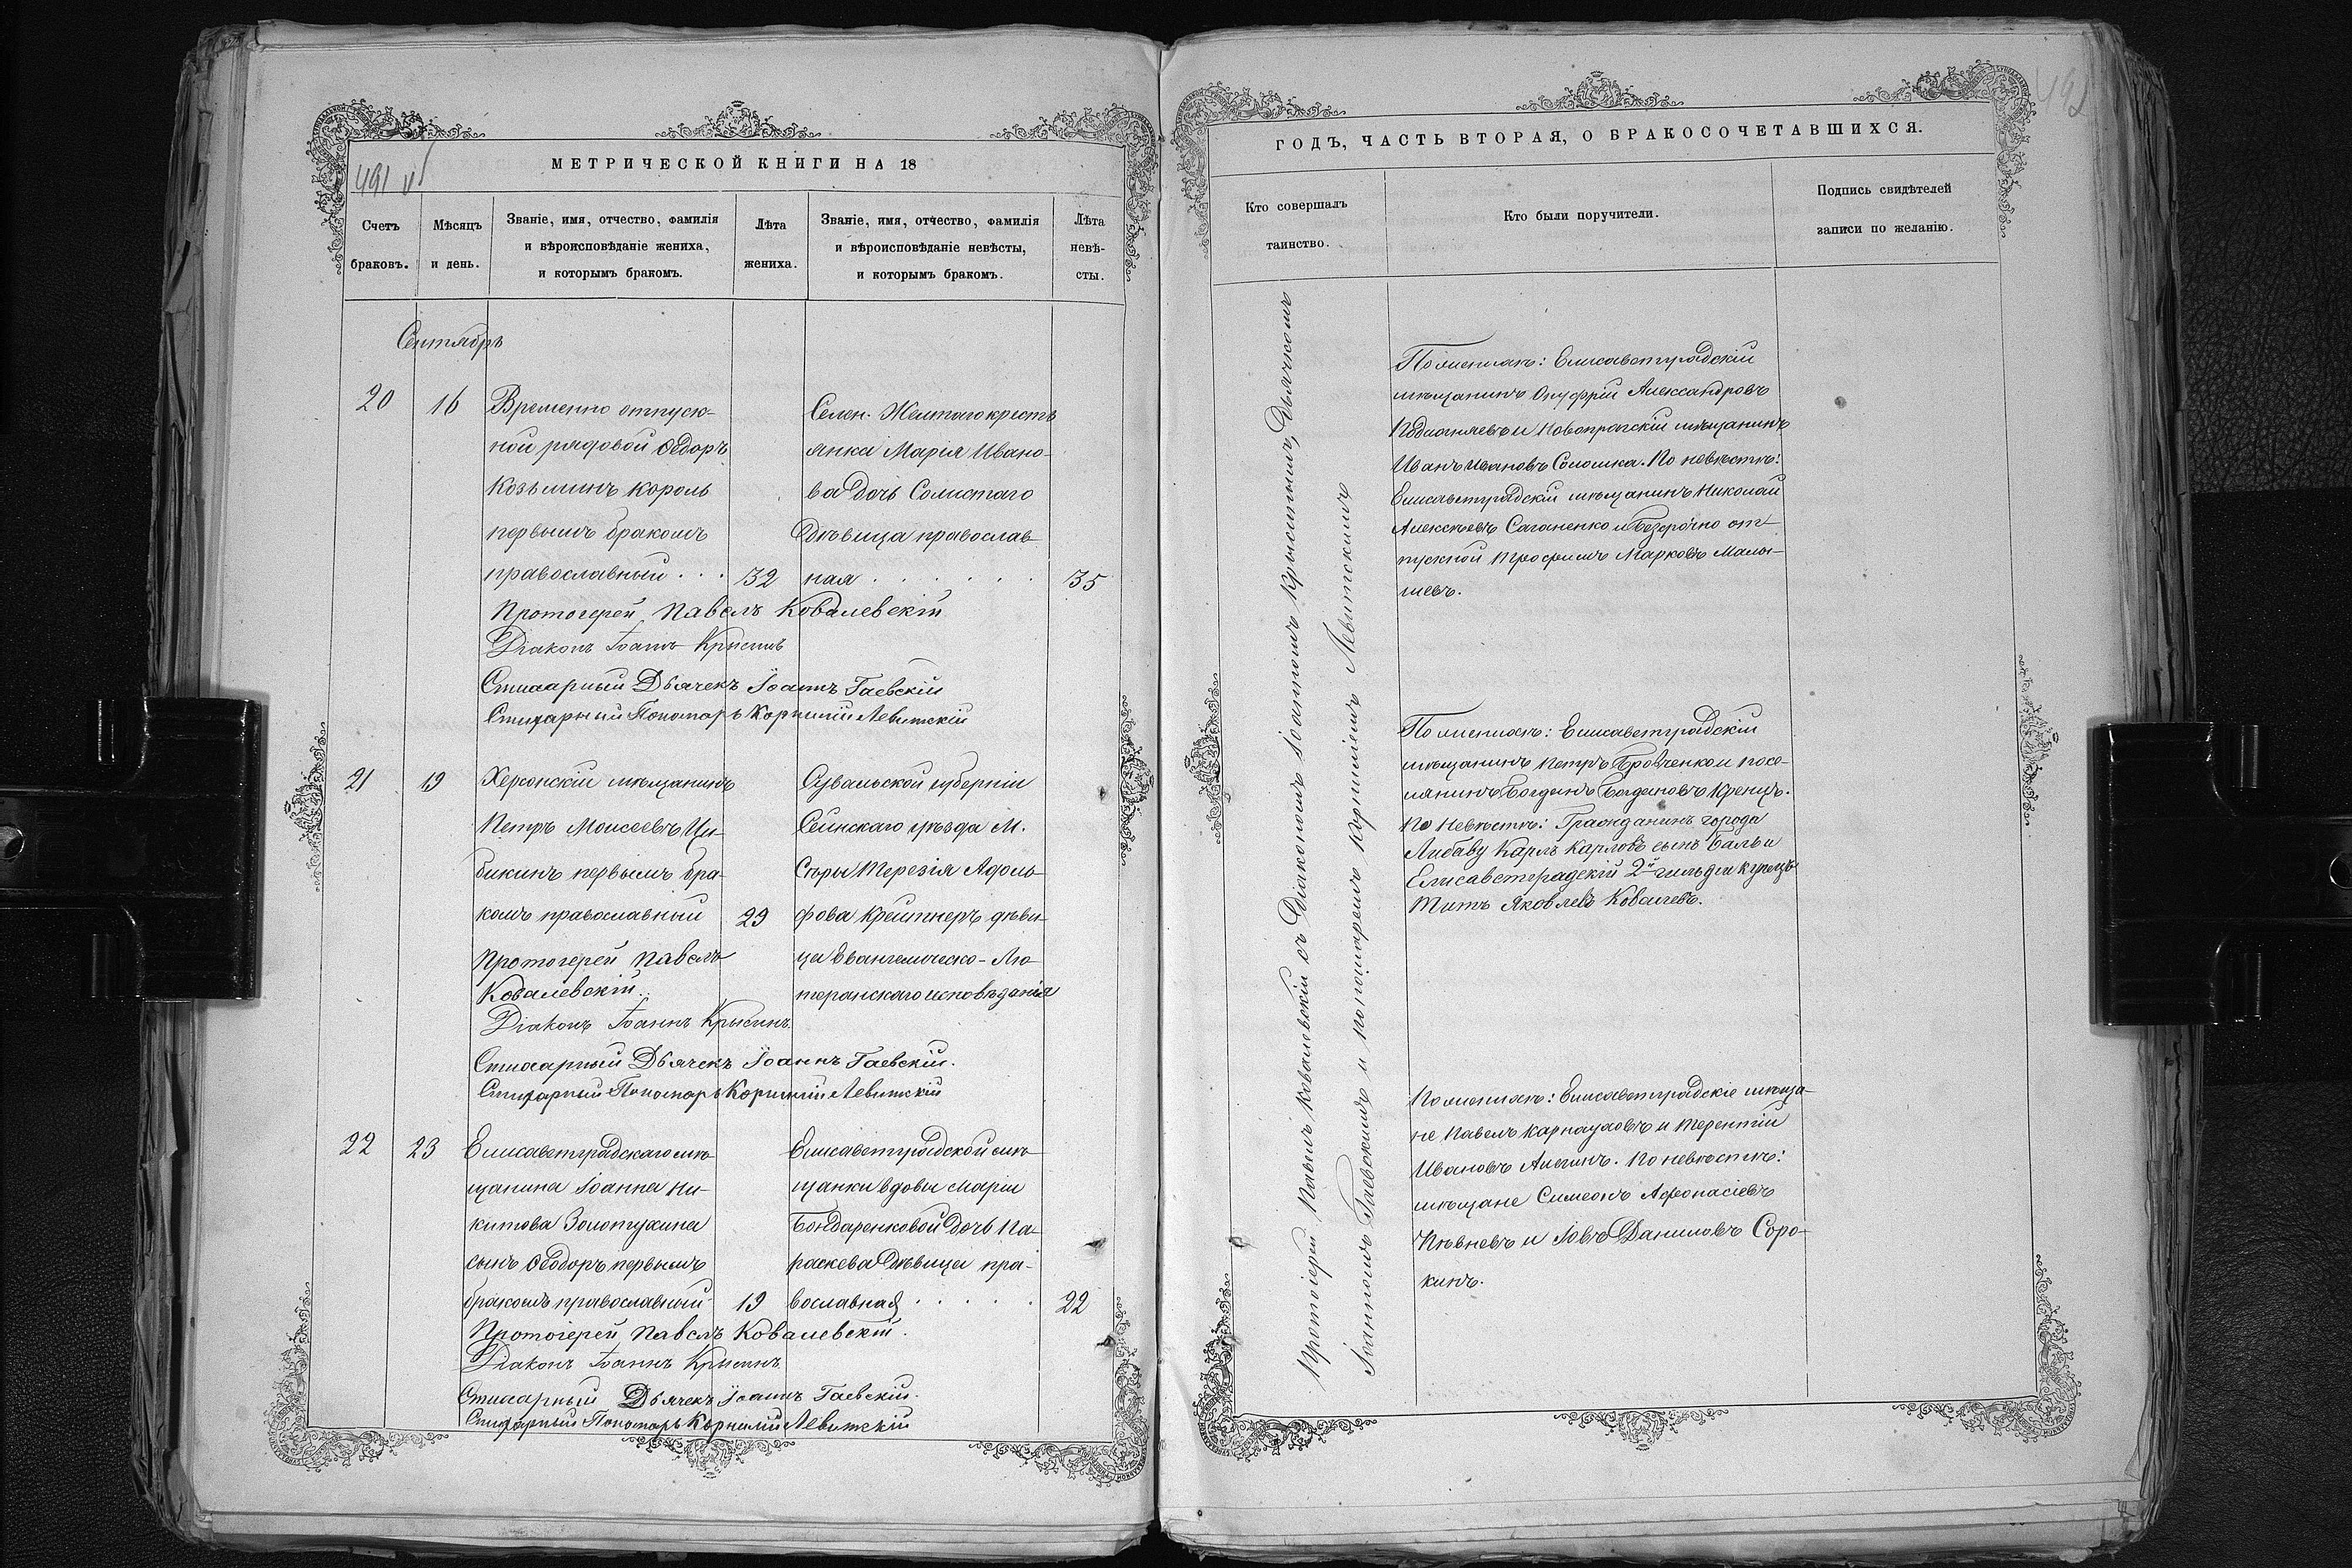 491 об
МЕТРИЧЕСКОЙ КНИГИ НА 18
Счетъ браковъ.
Мѣсяцъ и день.
Званіе, имя, отчество, фамилія
и вѣроисповѣданіе жениха,
и которымъ бракомъ.
Лѣта
жениха.
Званіе, имя, отчество, фамилія
и вѣроисповѣданіе невѣсты,
и которымъ бракомъ.
Лѣта
невѣ-
сты.
Сентябрь
20
16
Временно отпуск-
ной рядовой Ѳедоръ
Козьминъ Король
первымъ бракомъ
православный . . .
32
Селен. Желтаго кресть
янка Марія Ивано-
ва дочь Солистаго
дѣвица православ-
ная . . . . . .
35
Протоіерей Павелъ Ковалевскій
Діаконъ Іоаннъ Крысинъ
Стихарный Дьячекъ Іоаннъ Гаевскій
Стихарный Пономарь Корнилій Левитскій
21
19
Херсонскій мѣщанинъ
Петръ Моисеевъ Ци-
бикинъ первымъ бра-
комъ православный
29
Сувальской губерніи
Сейнскаго уѣзда М.
Терезія Адоль-
фова Крейтнеръ дѣви-
ца Евангелическо-Лю-
теранскаго исповѣданія
Протоіерей Павелъ
Ковалевскій.
Діаконъ Іоаннъ Крысинъ.
Стихарный Дьячекъ Іоаннъ Гаевскій.
Стихарный Пономарь Корнилій Левитскій
22
23
Елисаветградскаго мѣ-
щанина Іоанна Ни-
китова Золотухина
сынъ Ѳеодоръ первымъ
бракомъ православный
19
Елисаветградской мѣ-
щанки вдовы Маріи
Бондаренковой дочь Па-
раскева дѣвица пра-
вославная . . . . .
22
Протоіерей Павелъ Ковалевскій.
Діаконъ Іоаннъ Крысинъ.
Стихарный Дьячекъ Іоаннъ Гаевскій.
Стихарный Пономарь Корнилій Левитскій
192
ГОДЪ, ЧАСТЬ ВТОРАЯ, О БРАКОСОЧЕТАВШИХСЯ.
Кто совершалъ
таинство.
Кто были поручители.
Подпись свидѣтелей
записи по желанію.
Протоіерей Павелъ Ковалевскій съ Діакономъ Іоанномъ Крысинымъ, Дьячкомъ
Іоанномъ Гаевскимъ и пономаремъ Корниліемъ Левитскимъ
По женихѣ: Елисаветградскій
мѣщанинъ Онуфрій Александровъ
и Новопражскій мѣщанинъ
Иванъ Ивановъ Соломка. По невѣстѣ:
Елисаветградскій мѣщанинъ Николай
Алексѣевъ Саганенко и безсрочно от-
пускной Трофимъ Марковъ Малы-
шевъ.
По женихѣ: Елисаветградскій
мѣщанинъ Петръ Бровченко и посе-
лянинъ Богданъ Богдановъ Кренцъ.
По невѣстѣ: Гражданинъ города
Либаву Карлъ Карловъ сынъ Баль и
Елисаветградскій 2й гильдіи купецъ
Титъ Яковлевъ Ковалевъ.
По женихѣ: Елисаветградскіе мѣща-
не Павелъ Карнауховъ и Терентій
Ивановъ Алехинъ. По невѣстѣ:
мѣщане Симеонъ Афонасіевъ
Пѣвневъ и Іовъ Даниловъ Соро-
кинъ.